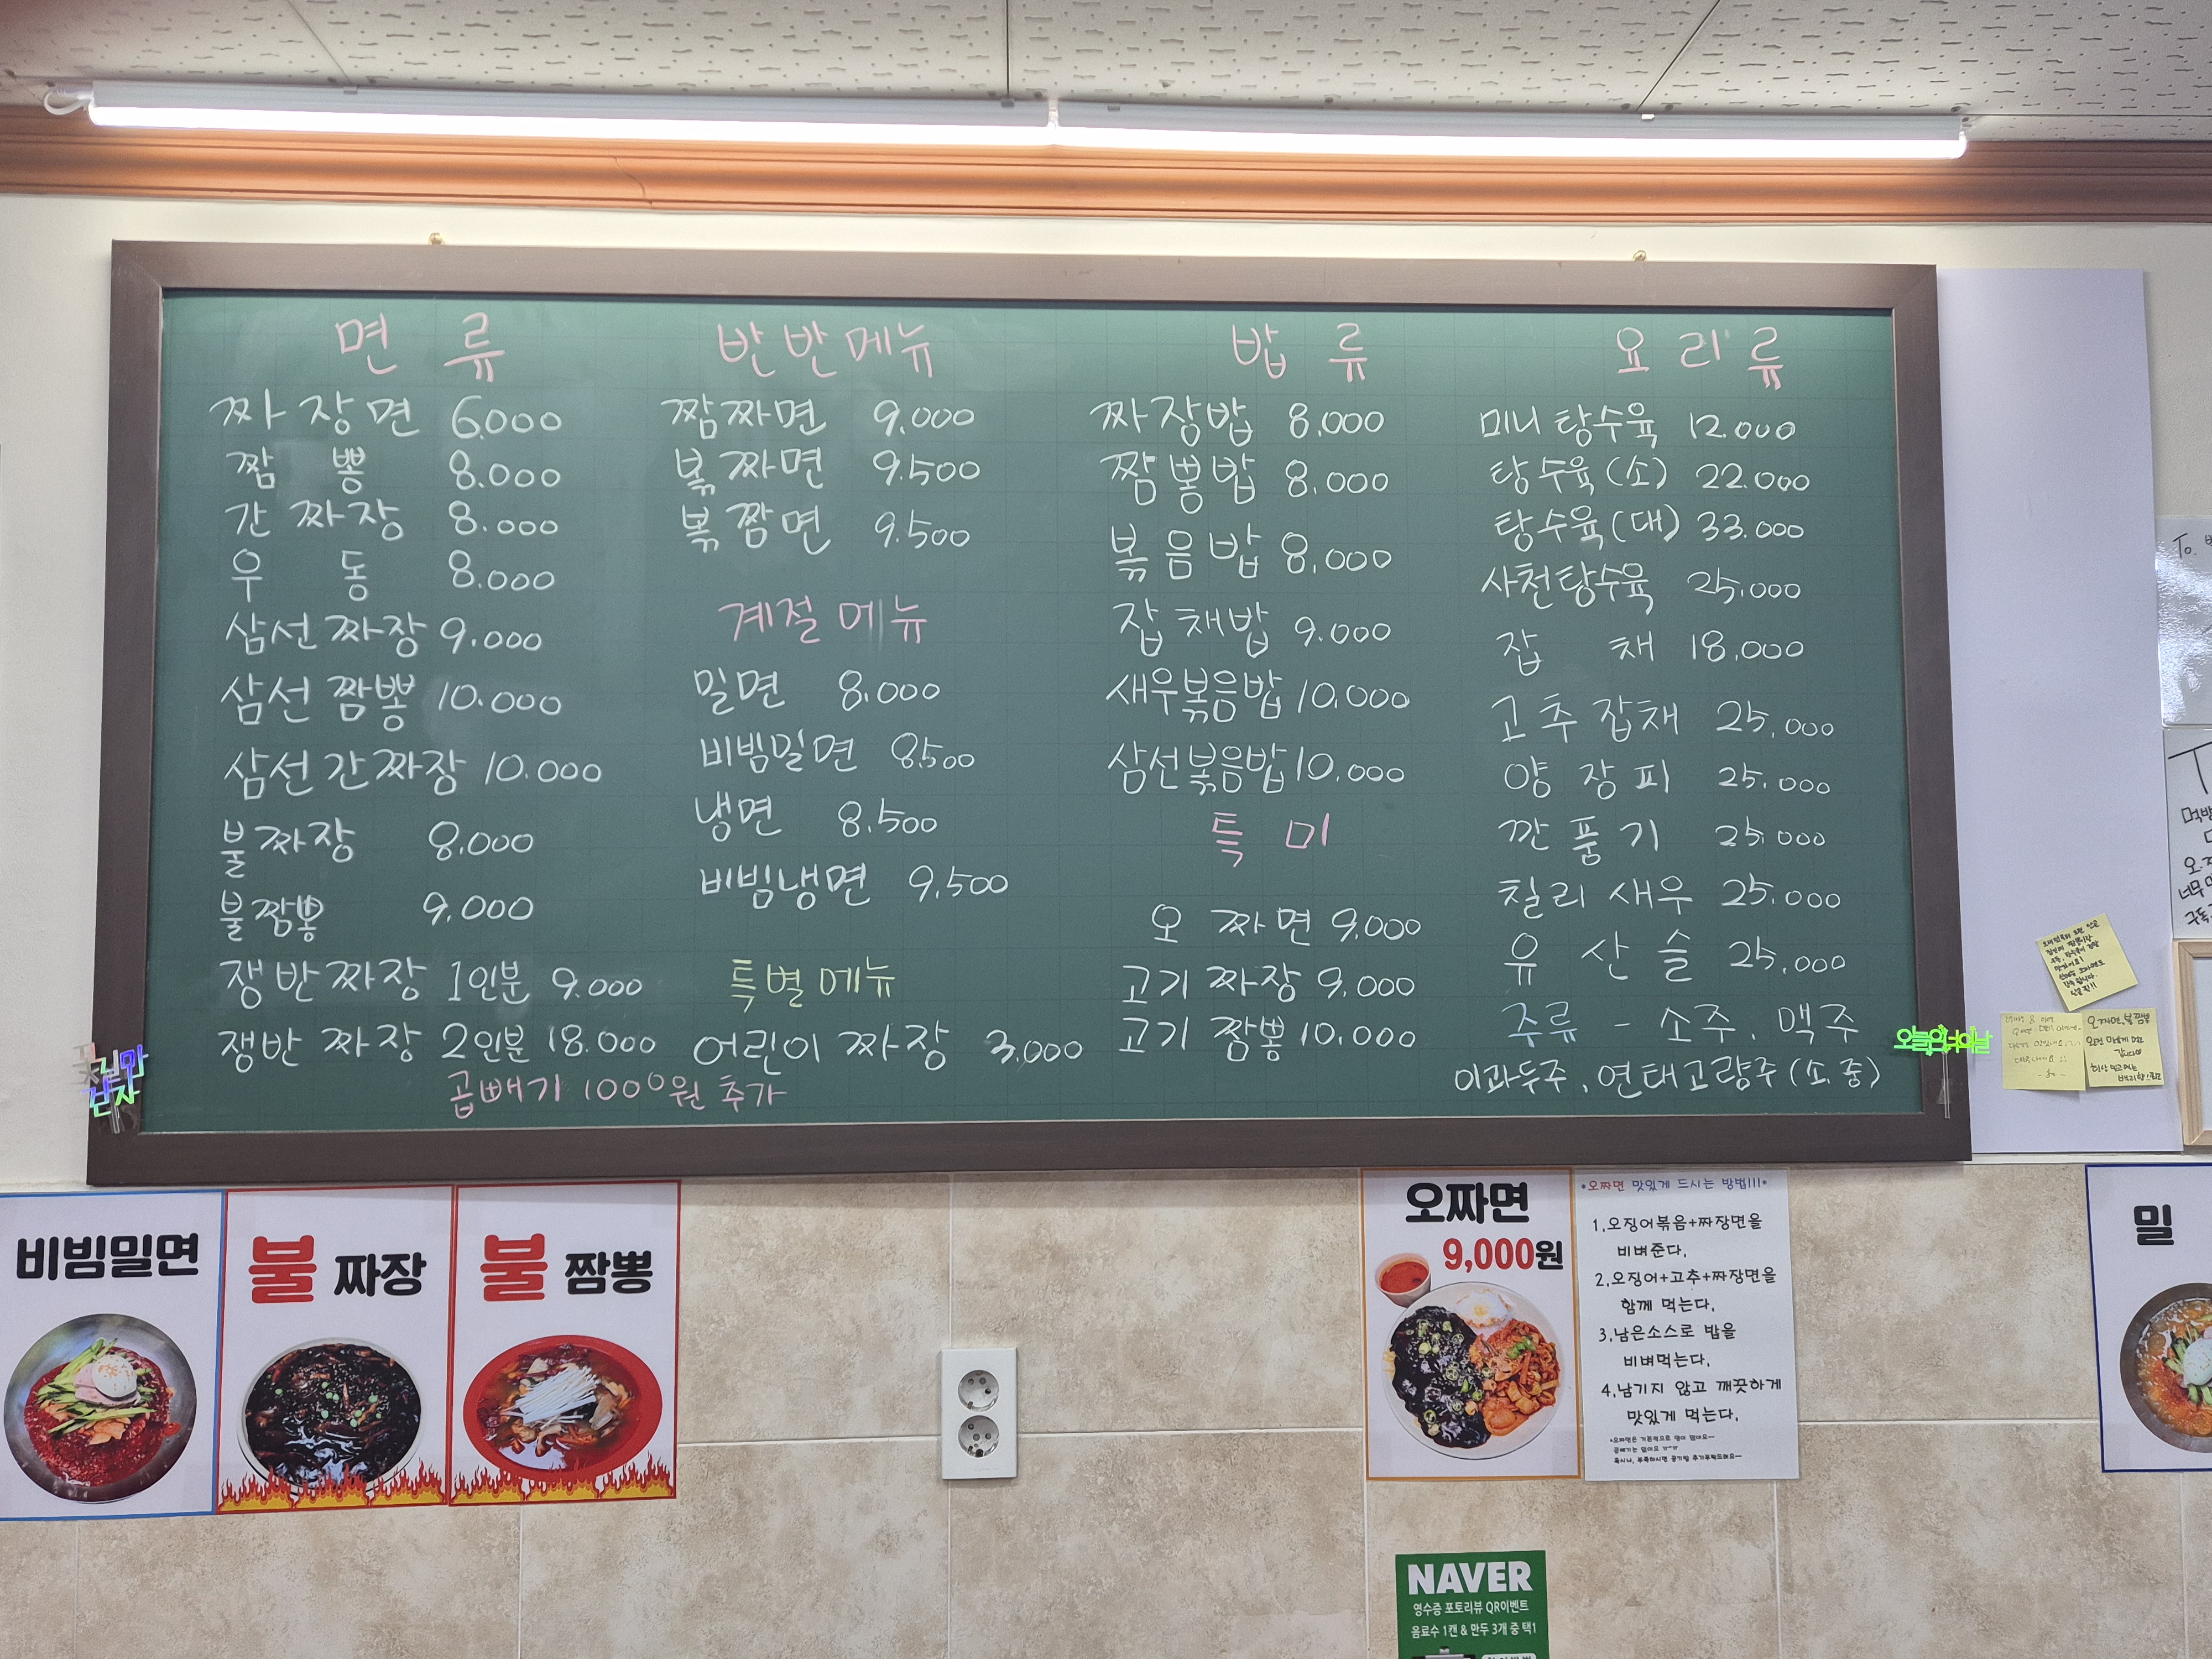 면 류
짜장면 6,000
짬 뽕 8.000
간 짜장 8.000
우 동 8.000
삼선짜장 9.000
삼선 짬뽕 10.000
삼선간짜장 10.000
불짜장 8.000
불짬뽕 9.000
쟁반짜장 1인분 9.000
쟁반 짜장 2인분 18.000
곱빼기 1000원 추가
반반메뉴
짬짜면 9.000
볶짜면 9.500
볶짬면 9.500
계절메뉴
밀면 8.000
비빔밀면 8.500
냉면 8.500
비빔냉면 9.500
특별메뉴
어린이 짜장 3.000
밥 류
짜장밥 8.000
짬뽕밥 8.000
볶음밥 8.000
잡채밥 9.000
새우볶음밥 10.000
삼선볶음밥 10.000
특 미
오 짜면 9.000
고기 짜장 9.000
고기 짬뽕 10.000
요리류
미니탕수육 12.000
탕수육(소) 22.000
탕수육(대) 33.000
사천탕수육 25.000
잡 채 18.000
고추잡채 25.000
양장피 25.000
깐풍기 25.000
칠리새우 25.000
유산슬 25.000
주류 - 소주, 맥주
이과두주, 연태고량주(소.중)
비빔밀면
불 짜장
불 짬뽕
오짜면
9,000원
•오짜면 맛있게 드시는 방법!!!•
1.오징어볶음+짜장면을
비벼준다.
2.오징어+고추+짜장면을
함께 먹는다.
3.남은소스로 밥을
비벼먹는다.
4.남기지 않고 깨끗하게
맛있게 먹는다.
밀
NAVER
영수증 포토리뷰 QR이벤트
음료수 1캔 & 만두 3개 중 택1